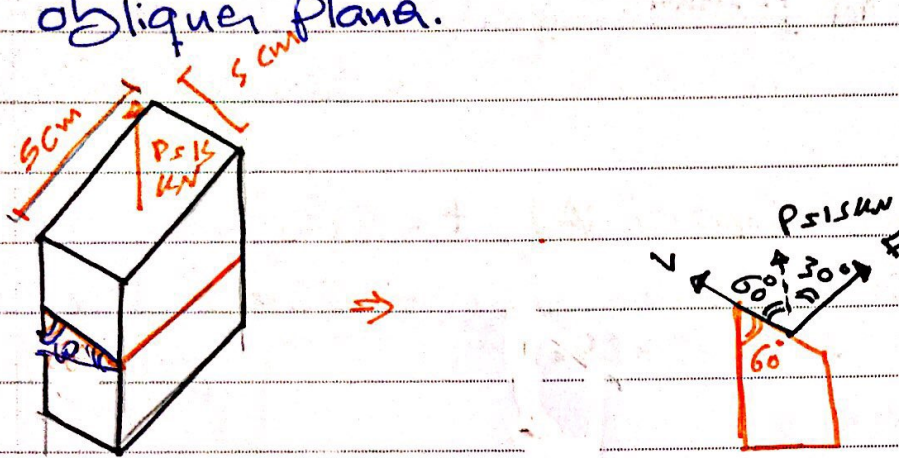 obliquer plane.
5cm
5cm
P=15
KN
P=15KN
V
60° 30°
F
60°